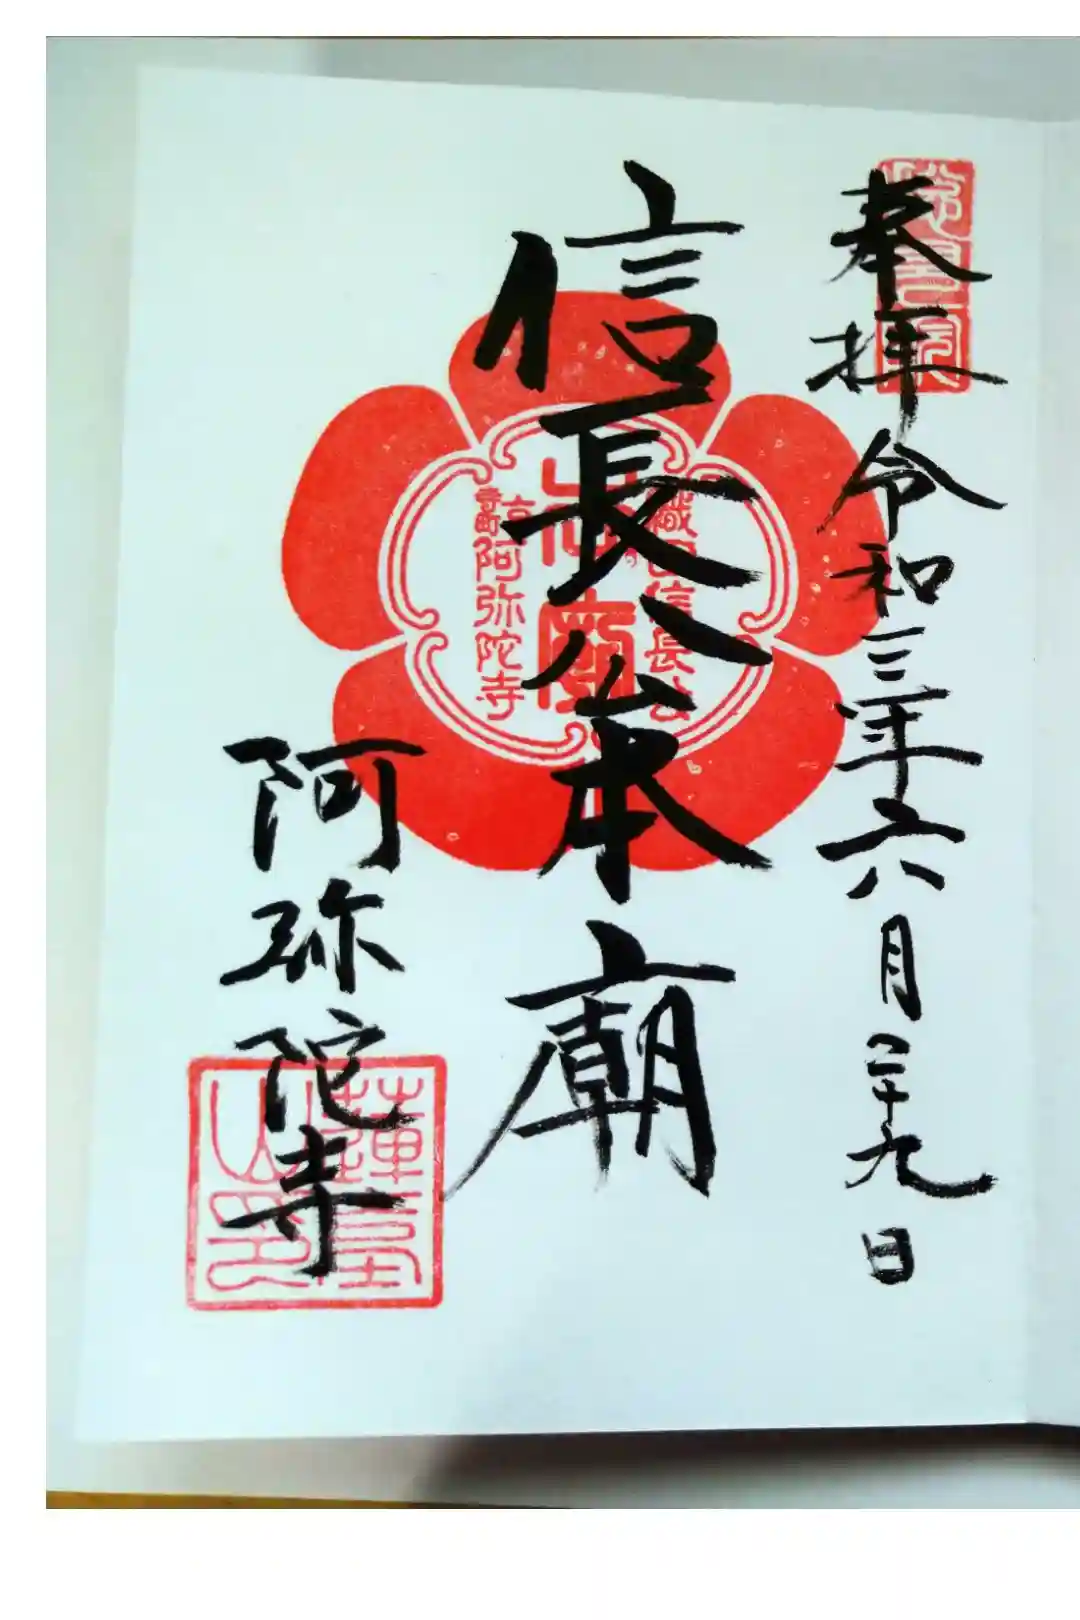 奉拝 令和三年六月二十九日
信長公本廟
織田信長公
本廟
京寺町
阿弥陀寺
阿弥陀寺
蓮台山